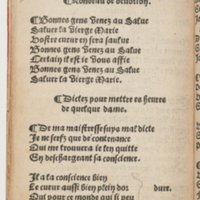 Rondeau de devotion.
Bonnes gens Venez au Salue
Saluer la Vierge Marie
Vostre cueur en sera saulue
Bonnes gens Venez au Salue
Certain il est ie Vous affie
Bonnes gens Venez au Salue
Saluer la Vierge Marie.
Dictez pour mettre es heures
de quelque dame.
De ma maistresse suys mal dicte
Je ne scay que de contenance
Qui me trouuera ie ten quitte
En deschargeant sa conscience.
Il a la conscience bien
Le cueur aussi bien plein dor
dure.
Qui pour ce monde qui si peu